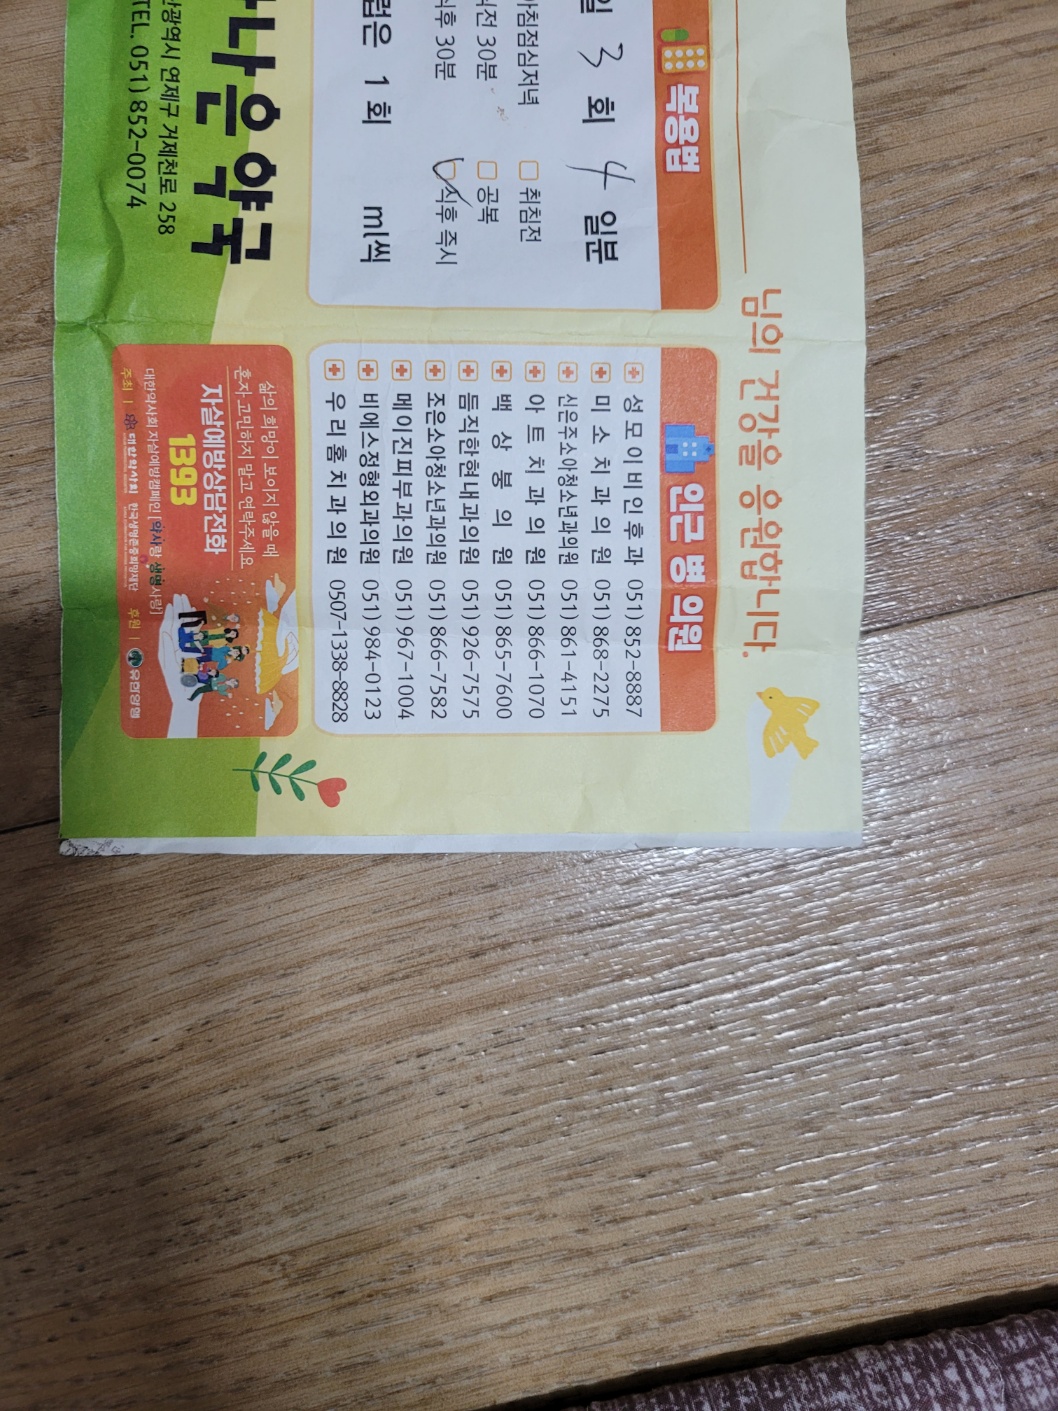 님의 건강을 응원합니다.
복용법
일 3 회 4 일분
아침점심저녁
취침전
식전 30분
공복
식후 30분
식후 즉시
럽은 1 회 ml씩
인근 병 의원
성모이비인후과 051) 852-8887
미소치과의원 051) 868-2275
신은주소아청소년과의원 051) 861-4151
아트치과의원 051) 866-1070
백상봉의원 051) 865-7600
듬직한현내과의원 051) 926-7575
조은소아청소년과의원 051) 866-7582
메이진피부과의원 051) 967-1004
비에스정형외과의원 051) 984-0123
우리홈치과의원 0507-1338-8828
나은약국
산광역시 연제구 거제천로 258
TEL. 051) 852-0074
삶의 희망이 보이지 않을 때
혼자 고민하지 말고 연락주세요
자살예방상담전화
1393
대한약사회 자살예방캠페인 [약사랑 생명사랑]
주최 | 대한약사회 한국생명존중희망재단 후원 | 유한양행